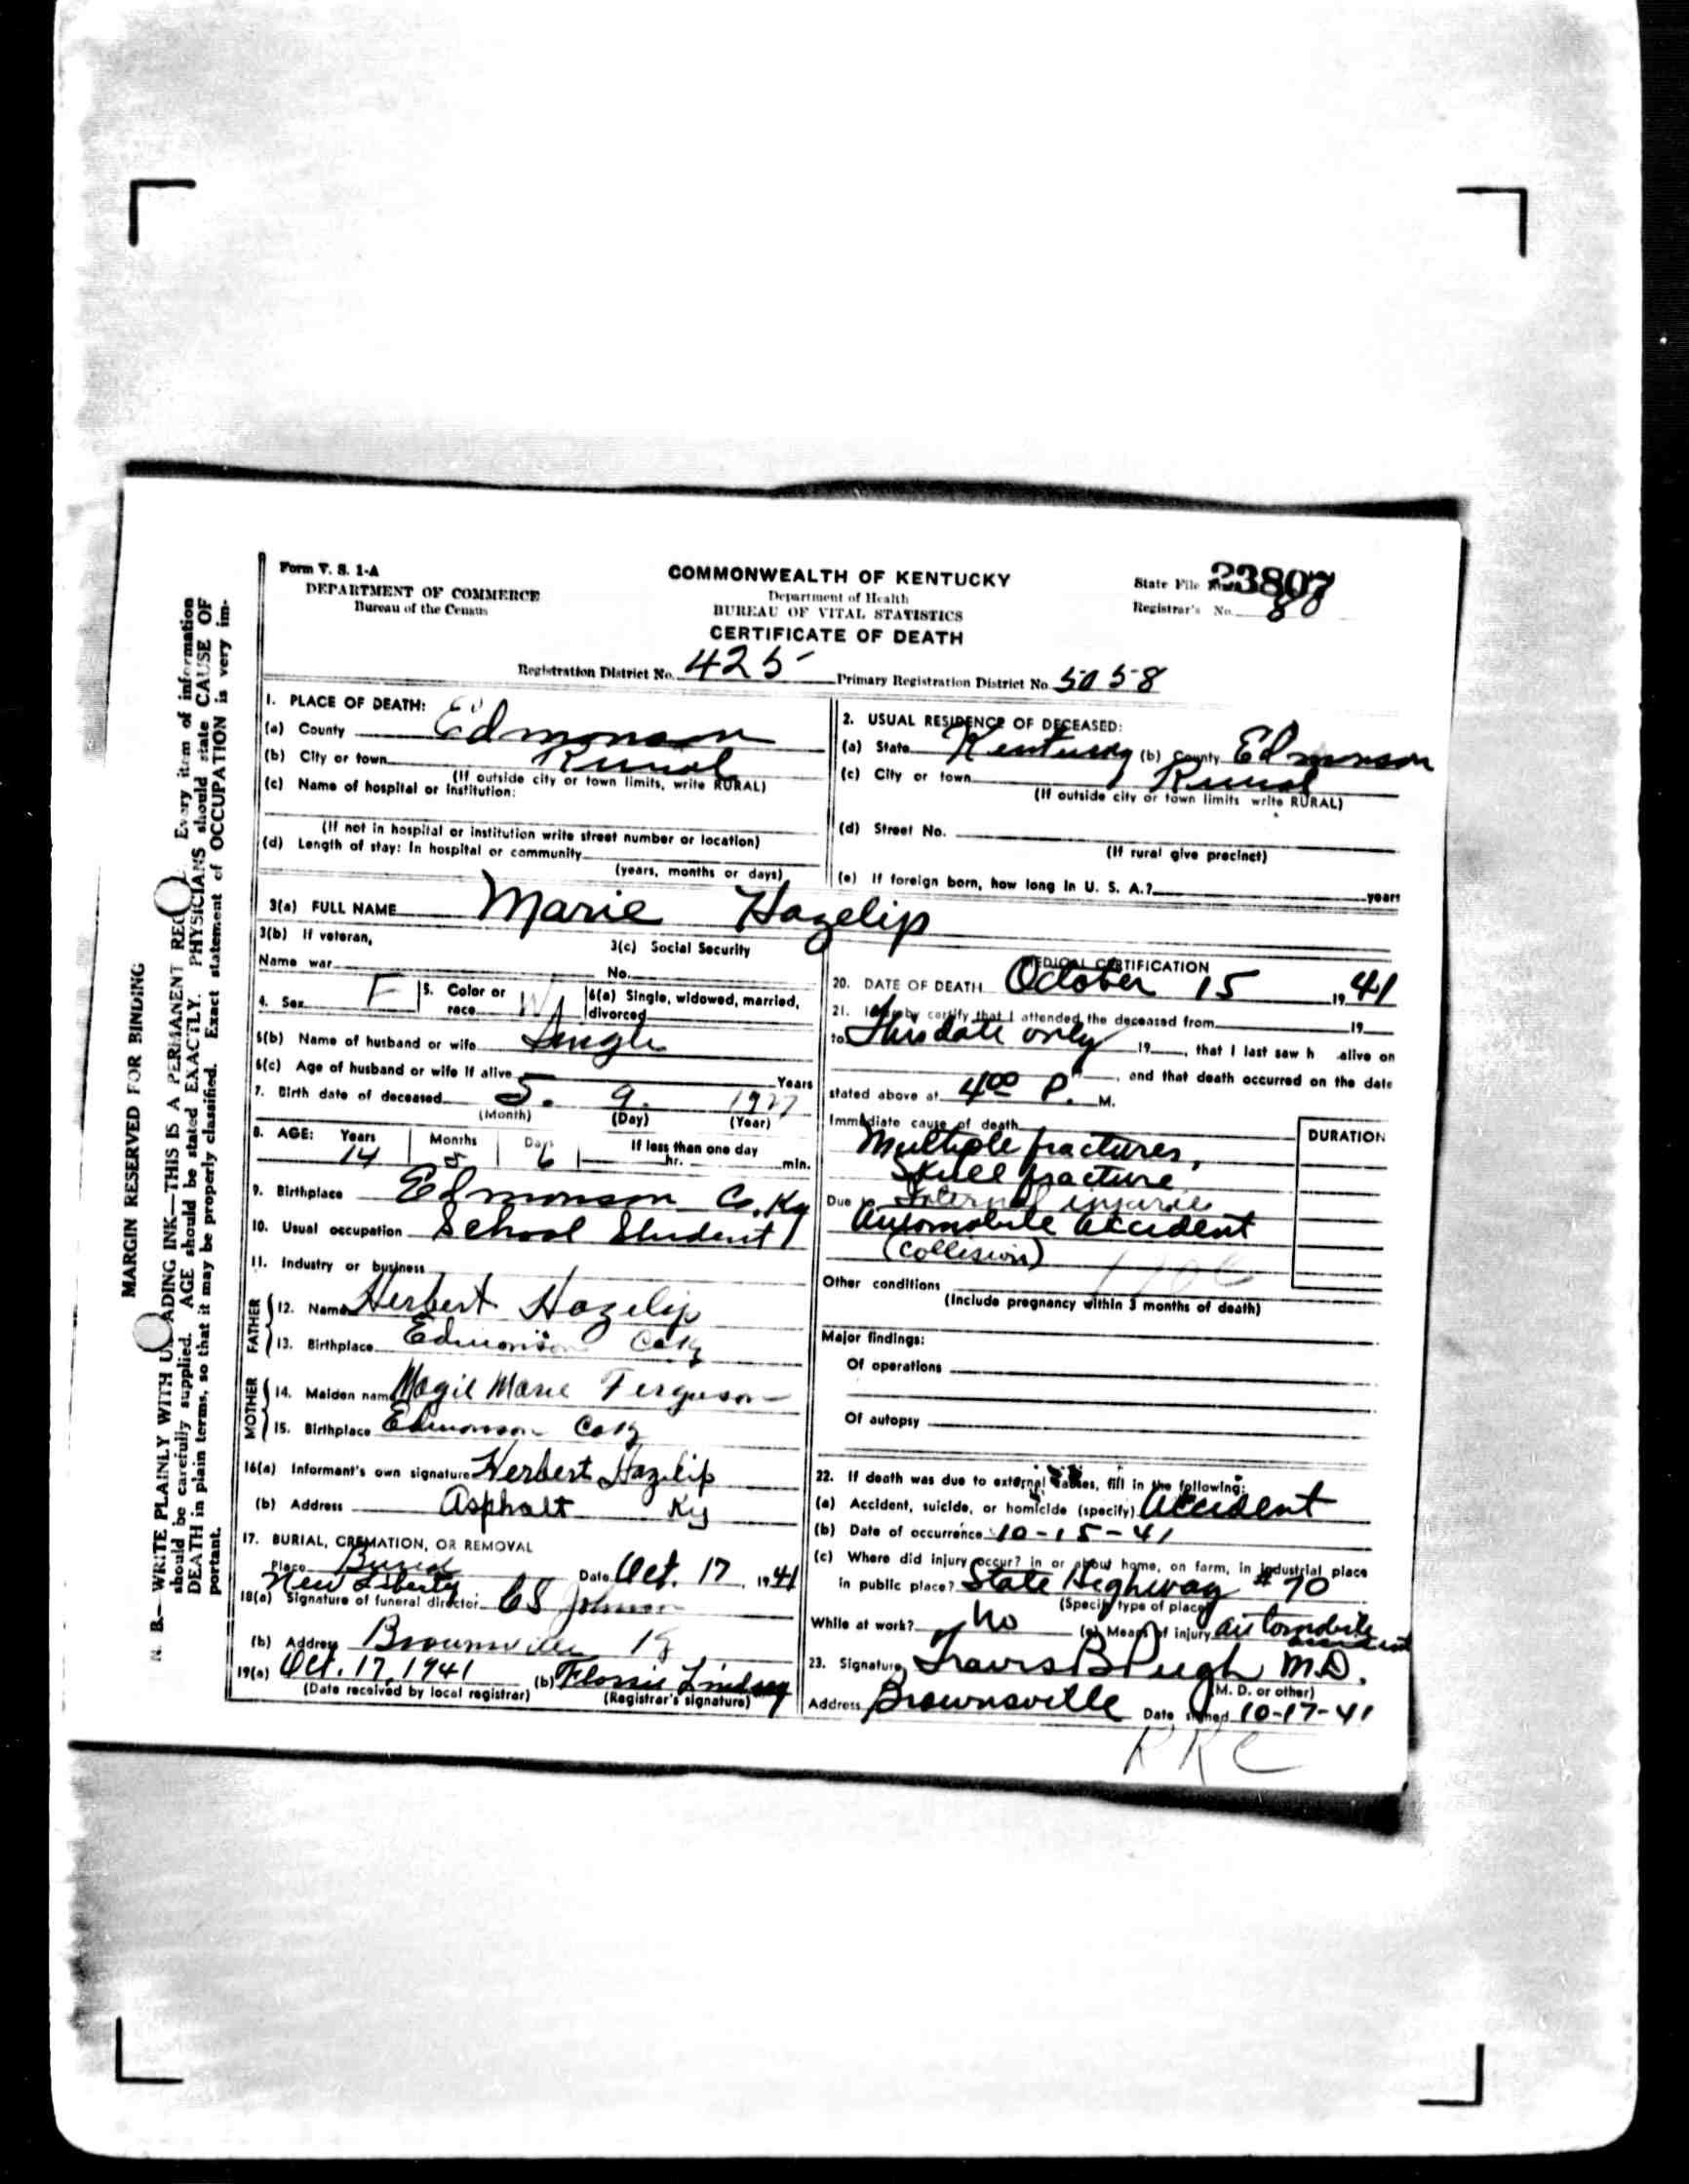 Form V. S. 1-A
DEPARTMENT OF COMMERCE
Bureau of the Census
COMMONWEALTH OF KENTUCKY
Department of Health
BUREAU OF VITAL STATISTICS
CERTIFICATE OF DEATH
State File 23807
Registrar's No. 80
Registration District No. 425 Primary Registration District No. 5058
MARGIN RESERVED FOR BINDING
N. B.—WRITE PLAINLY WITH ADING INK—THIS IS A PERMANENT REC Every item of information
should be carefully supplied. AGE should be stated EXACTLY. PHYSICIANS should state CAUSE OF
DEATH in plain terms, so that it may be properly classified. Exact statement of OCCUPATION is very im-
portant.
1. PLACE OF DEATH:
(a) County Edmonson
(b) City or town Rural
(If outside city or town limits, write RURAL)
(c) Name of hospital or institution:
(If not in hospital or institution write street number or location)
(d) Length of stay: In hospital or community
(years, months or days)
2. USUAL RESIDENCE OF DECEASED:
(a) State Kentucky (b) County Edmonson
(c) City or town Rural
(If outside city or town limits write RURAL)
(d) Street No.
(If rural give precinct)
(e) If foreign born, how long in U. S. A.? years
3(a) FULL NAME Marie Hazelip
3(b) If veteran,
Name war
3(c) Social Security
No.
4. Sex F 5. Color or race W 6(a) Single, widowed, married, divorced
6(b) Name of husband or wife Single
6(c) Age of husband or wife if alive Years
7. Birth date of deceased 5. 9. 1927
(Month) (Day) (Year)
8. AGE: Years Months Days If less than one day
14 5 6 hr. min.
9. Birthplace Edmonson Co. Ky
10. Usual occupation School Student
11. Industry or business
FATHER
12. Name Herbert Hazelip
13. Birthplace Edmonson Co Ky
MOTHER
14. Maiden name Magie Marie Ferguson
15. Birthplace Edmonson Co Ky
16(a) Informant's own signature Herbert Hazelip
(b) Address Asphalt Ky
17. BURIAL, CREMATION, OR REMOVAL
Place Buried New Liberty Date Oct. 17, 1941
18(a) Signature of funeral director CS Johnson
(b) Address Brownsville Ky
19(a) Oct. 17, 1941 (b) Flossie Lindsey
(Date received by local registrar) (Registrar's signature)
MEDICAL CERTIFICATION
20. DATE OF DEATH October 15 1941
21. I hereby certify that I attended the deceased from 19
to This date only 19 , that I last saw h alive on
, and that death occurred on the date
stated above at 4:00 P. M.
Immediate cause of death DURATION
Multiple fractures,
Skull fracture
Due to Internal injuries
Automobile accident
(Collision)
Other conditions
(Include pregnancy within 3 months of death)
Major findings:
Of operations
Of autopsy
22. If death was due to external causes, fill in the following:
(a) Accident, suicide, or homicide (specify) Accident
(b) Date of occurrence 10-15-41
(c) Where did injury occur? in or about home, on farm, in industrial place
in public place? State Highway #70
(Specify type of place)
While at work? No (e) Means of injury automobile accident
23. Signature Travis B Pugh M.D.
(M. D. or other)
Address Brownsville Date signed 10-17-41
RRC